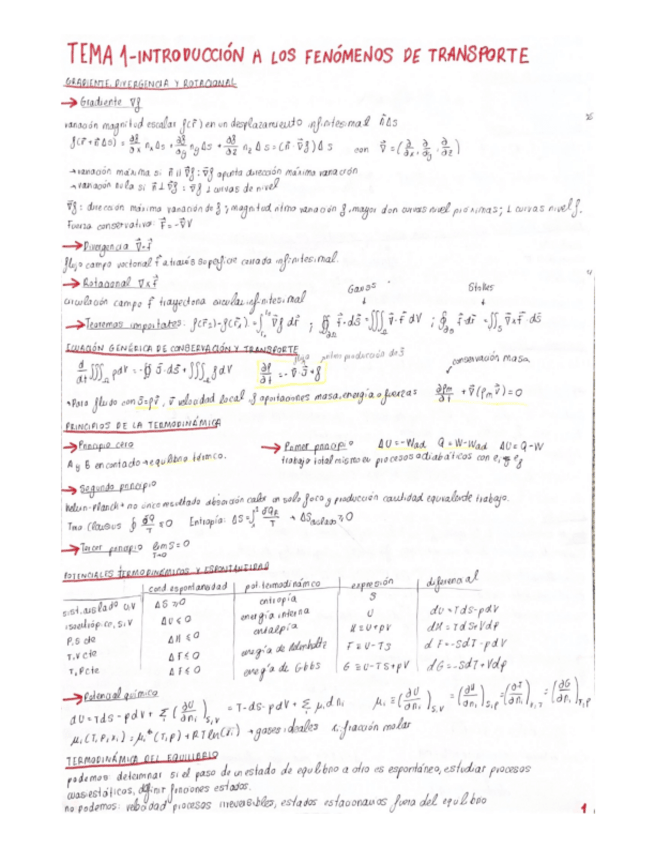 TEMA 1-INTRODUCCIÓN A LOS FENÓMENOS DE TRANSPORTE
GRADIENTE, DIVERGENCIA Y ROTACIONAL
→ Gradiente ∇f
variación magnitud escalar f(r⃗) en un desplazamiento infinitesimal n̂Δs
f(r⃗+n̂Δs) = ∂f/∂x nₓΔs + ∂f/∂y n_yΔs + ∂f/∂z n_zΔs = (n̂·∇⃗f)Δs con ∇⃗ = (∂/∂x, ∂/∂y, ∂/∂z)
→ variación máxima si n̂ ∥ ∇⃗f : ∇⃗f apunta dirección máxima variación
→ variación nula si n̂ ⊥ ∇⃗f : ∇⃗f ⊥ curvas de nivel
∇⃗f : dirección máxima variación de f ; magnitud, ritmo variación f, mayor don curvas nivel próximas; ⊥ curvas nivel f.
Fuerza conservativa: F⃗ = -∇⃗V
→ Divergencia ∇⃗·f⃗
flujo campo vectorial f⃗ a través superficie cerrada infinitesimal.
→ Rotacional ∇⃗×f⃗
circulación campo f⃗ trayectoria circular infinitesimal
Gauss Stokes
→ Teoremas importantes:
ECUACIÓN GENÉRICA DE CONSERVACIÓN Y TRANSPORTE
d/dt ∭ ρdV = -∯ J⃗·dS⃗ + ∭ gdV ∂ρ/∂t = -∇⃗·J⃗ + g
flujo conservación masa
•Para fluido con J⃗=ρv⃗, v⃗ velocidad local g aportaciones masa, energía o fuerzas ∂ρₘ/∂t + ∇⃗(ρₘv⃗) = 0
PRINCIPIOS DE LA TERMODINÁMICA
→ Principio cero
A y B en contacto → equilibrio térmico.
→ Primer principio ΔU = -Wad Q = W-Wad ΔU = Q-W
trabajo total mismo en procesos adiabáticos con
→ Segundo principio
Kelvin-Planck → no único resultado absorción calor un solo foco y producción cantidad equivalente de trabajo.
Tma Clausius ∮ đQ/T ≤ 0 Entropía: ΔS = ∫ đQ_R/T → ΔSaislado ≥ 0
→ Tercer principio lim S = 0
T→0
POTENCIALES TERMODINÁMICOS Y ESPONTANEIDAD
cond. espontaneidad pot. termodinámico expresión diferencial
sist. aislado U,V ΔS ≥ 0 entropía S
isoentrópico, S,V ΔU ≤ 0 energía interna U dU = TdS - pdV
P,S cte ΔH ≤ 0 entalpía H = U+pV dH = TdS+Vdp
T,V cte ΔF ≤ 0 energía de Helmholtz F = U-TS dF = -SdT-pdV
T,P cte energía de Gibbs G = U-TS+pV dG = -SdT+Vdp
→ Potencial químico
dU = TdS - pdV + Σ (∂U/∂nᵢ)_S,V = T·dS - pdV + Σ μᵢdnᵢ
μᵢ(T,P,xᵢ) = μᵢ*(T,P) + RTln(xᵢ) → gases ideales xᵢ fracción molar
TERMODINÁMICA DEL EQUILIBRIO
podemos: determinar si el paso de un estado de equilibrio a otro es espontáneo, estudiar procesos
cuasiestáticos, definir funciones estados.
no podemos: velocidad procesos irreversibles, estados estacionarios fuera del equilibrio
1